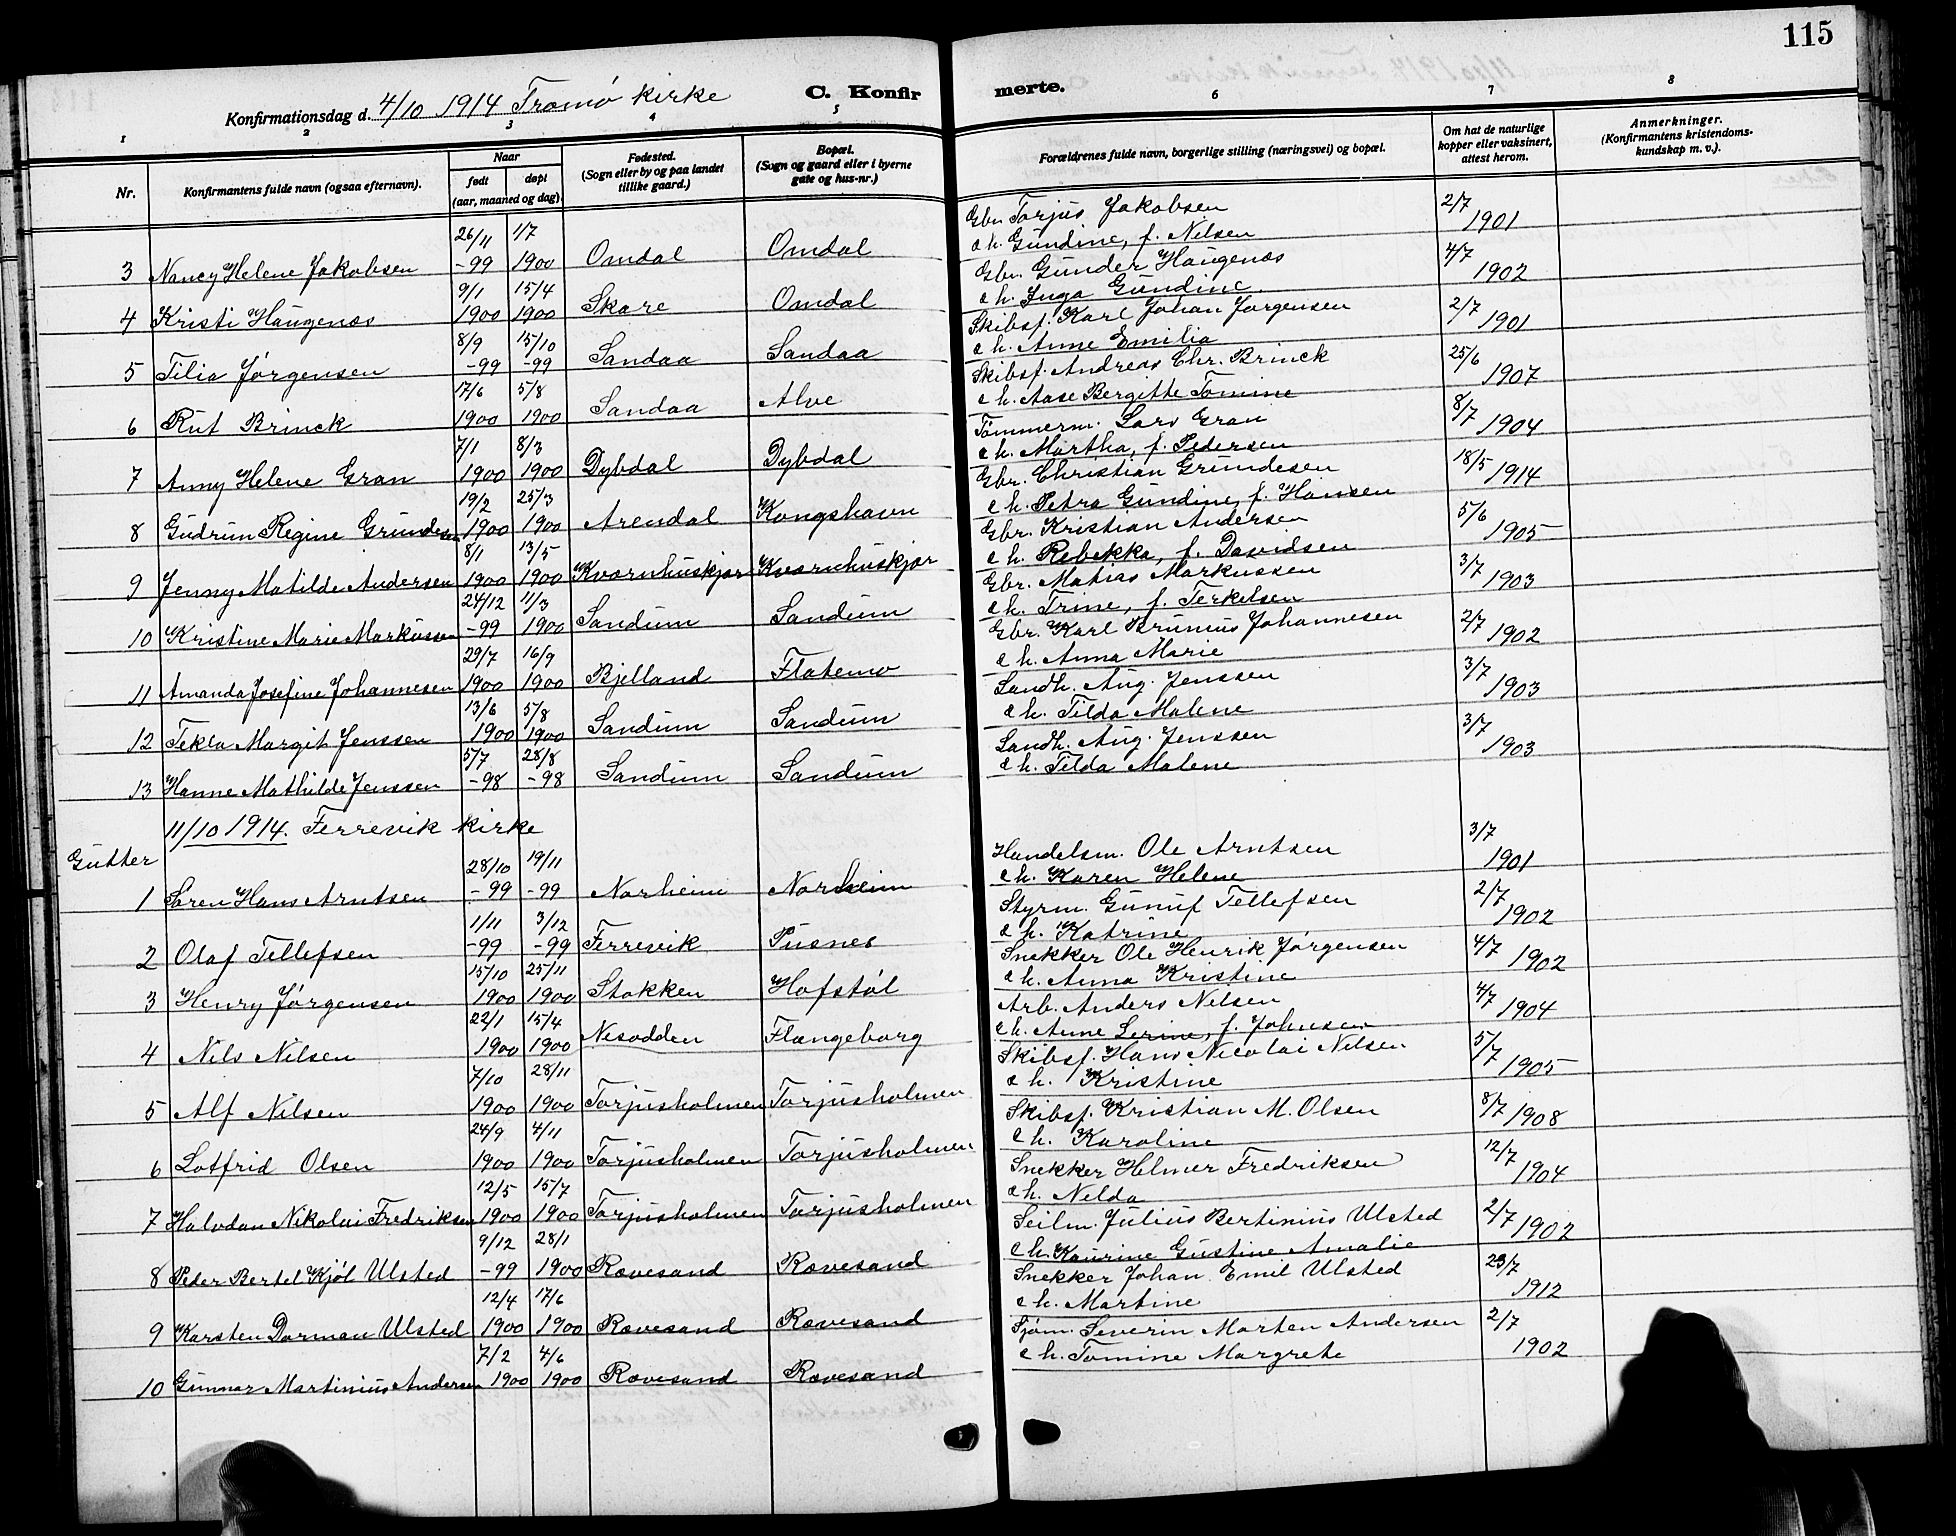 115
Konfirmationsdag d. 4/10 1914 Tromø kirke
C. Konfirmerte.
1 2 3 4 5 6 7 8
Nr.
Konfirmantens fulde navn (ogsaa efternavn).
Naar
født
døpt
(aar, maaned og dag)
Fødested.
(Sogn eller by og paa landet
tillike gaard.)
Bopæl.
(Sogn og gaard eller i byerne
gate og hus-nr.)
Forældrenes fulde navn, borgerlige stilling (næringsvei) og bopæl.
Om hat de naturlige
kopper eller vaksinert,
attest herom.
Anmerkninger.
(Konfirmantens kristendoms-
kundskap m. v.).
26/11 1/7 Gbr. Torjus Jakobsen 2/7
3 Nancy Helene Jakobsen -99 1900 Omdal Omdal e h. Gundine, f. Nilsen 1901
9/1 15/4 Gbr. Gunder Haugenæs 4/7
4 Kristi Haugenæs 1900 1900 Skare Omdal e h. Inga Gundine. 1902
8/9 15/10 Skibsf. Karl Johan Jørgensen 2/7
5 Tilia Jørgensen -99 -99 Sandaa Sandaa e h. Anne Emilia 1901
17/6 5/8 Skibsf. Andreas Chr. Brinck 25/6
6 Rut Brinck 1900 1900 Sandaa Alve e h. Aase Bergitte Tomine 1907
7/1 8/3 Tømmerm. Lars Gran 8/7
7 Anny Helene Gran 1900 1900 Dybdal Dybdal e h. Martha, f. Pedersen 1904
19/2 25/3 Gbr. Christian Grundesen 18/5
8 Gudrun Regine Grundesen 1900 1900 Arendal Kongshavn e h. Petra Gundine, f. Hansen 1914
8/1 13/5 Gbr. Kristian Andersen 5/6
9 Jenny Matilde Andersen 1900 1900 Kværnhuskjær Kværnhuskjær e h. Rebekka, f. Davidsen 1905
24/12 11/3 Gbr. Matias Markussen 3/7
10 Kristine Marie Markussen -99 1900 Sandum Sandum e h. Trine, f. Terkelsen 1903
29/7 16/9 Gbr. Karl Brunius Johannesen 2/7
11 Amanda Josefine Johannesen 1900 1900 Bjelland Flatemo e h. Anna Marie 1902
13/6 5/8 Landh. Aug. Jenssen 3/7
12 Tekla Margit Jenssen 1900 1900 Sandum Sandum e h. Tilda Malene 1903
5/7 28/8 Landh. Aug. Jenssen 3/7
13 Hanne Mathilde Jenssen -98 -98 Sandum Sandum e h. Tilda Malene 1903
11/10 1914. Færevik kirke
Gutter
28/10 19/11 Handelsm. Ole Arntsen 3/7
1 Søren Hans Arntsen -99 -99 Narheim Narheim e h. Karen Helene 1901
1/11 3/12 Styrm. Gunuf Tellefsen 2/7
2 Olaf Tellefsen -99 -99 Færevik Pusnes e h. Katrine 1902
15/10 25/11 Snekker Ole Henrik Jørgensen 4/7
3 Henry Jørgensen 1900 1900 Stokken Hofstøl e h. Anna Kristine 1902
22/1 15/4 Arb. Anders Nilsen 4/7
4 Nils Nilsen 1900 1900 Nesodden Flangeborg e h. Anne Serine, f. Johnsen 1904
7/10 28/11 Skibsf. Hans Nicolai Nilsen 5/7
5 Alf Nilsen 1900 1900 Torjusholmen Torjusholmen e h. Kristine 1905
24/9 4/11 Skibsf. Kristian M. Olsen 8/7
6 Lotfrid Olsen 1900 1900 Torjusholmen Torjusholmen e h. Karoline 1908
12/5 15/7 Snekker Helmer Fredriksen 12/7
7 Halvdan Nikolai Fredriksen 1900 1900 Torjusholmen Torjusholmen e h. Nilda 1904
9/12 28/1 Seilm. Julius Bertinius Ulsted 2/7
8 Peder Bertel Kjøl Ulsted -99 1900 Rævesand Rævesand e h. Kaurine Gustine Amalie 1902
12/4 17/6 Snekker Johan Emil Ulsted 23/7
9 Karsten Dorman Ulsted 1900 1900 Rævesand Rævesand e h. Martine 1912
7/2 4/6 Sjøm. Severin Morten Andersen 2/7
10 Gunnar Martinius Andersen 1900 1900 Rævesand Rævesand e h. Tomine Margrete 1902